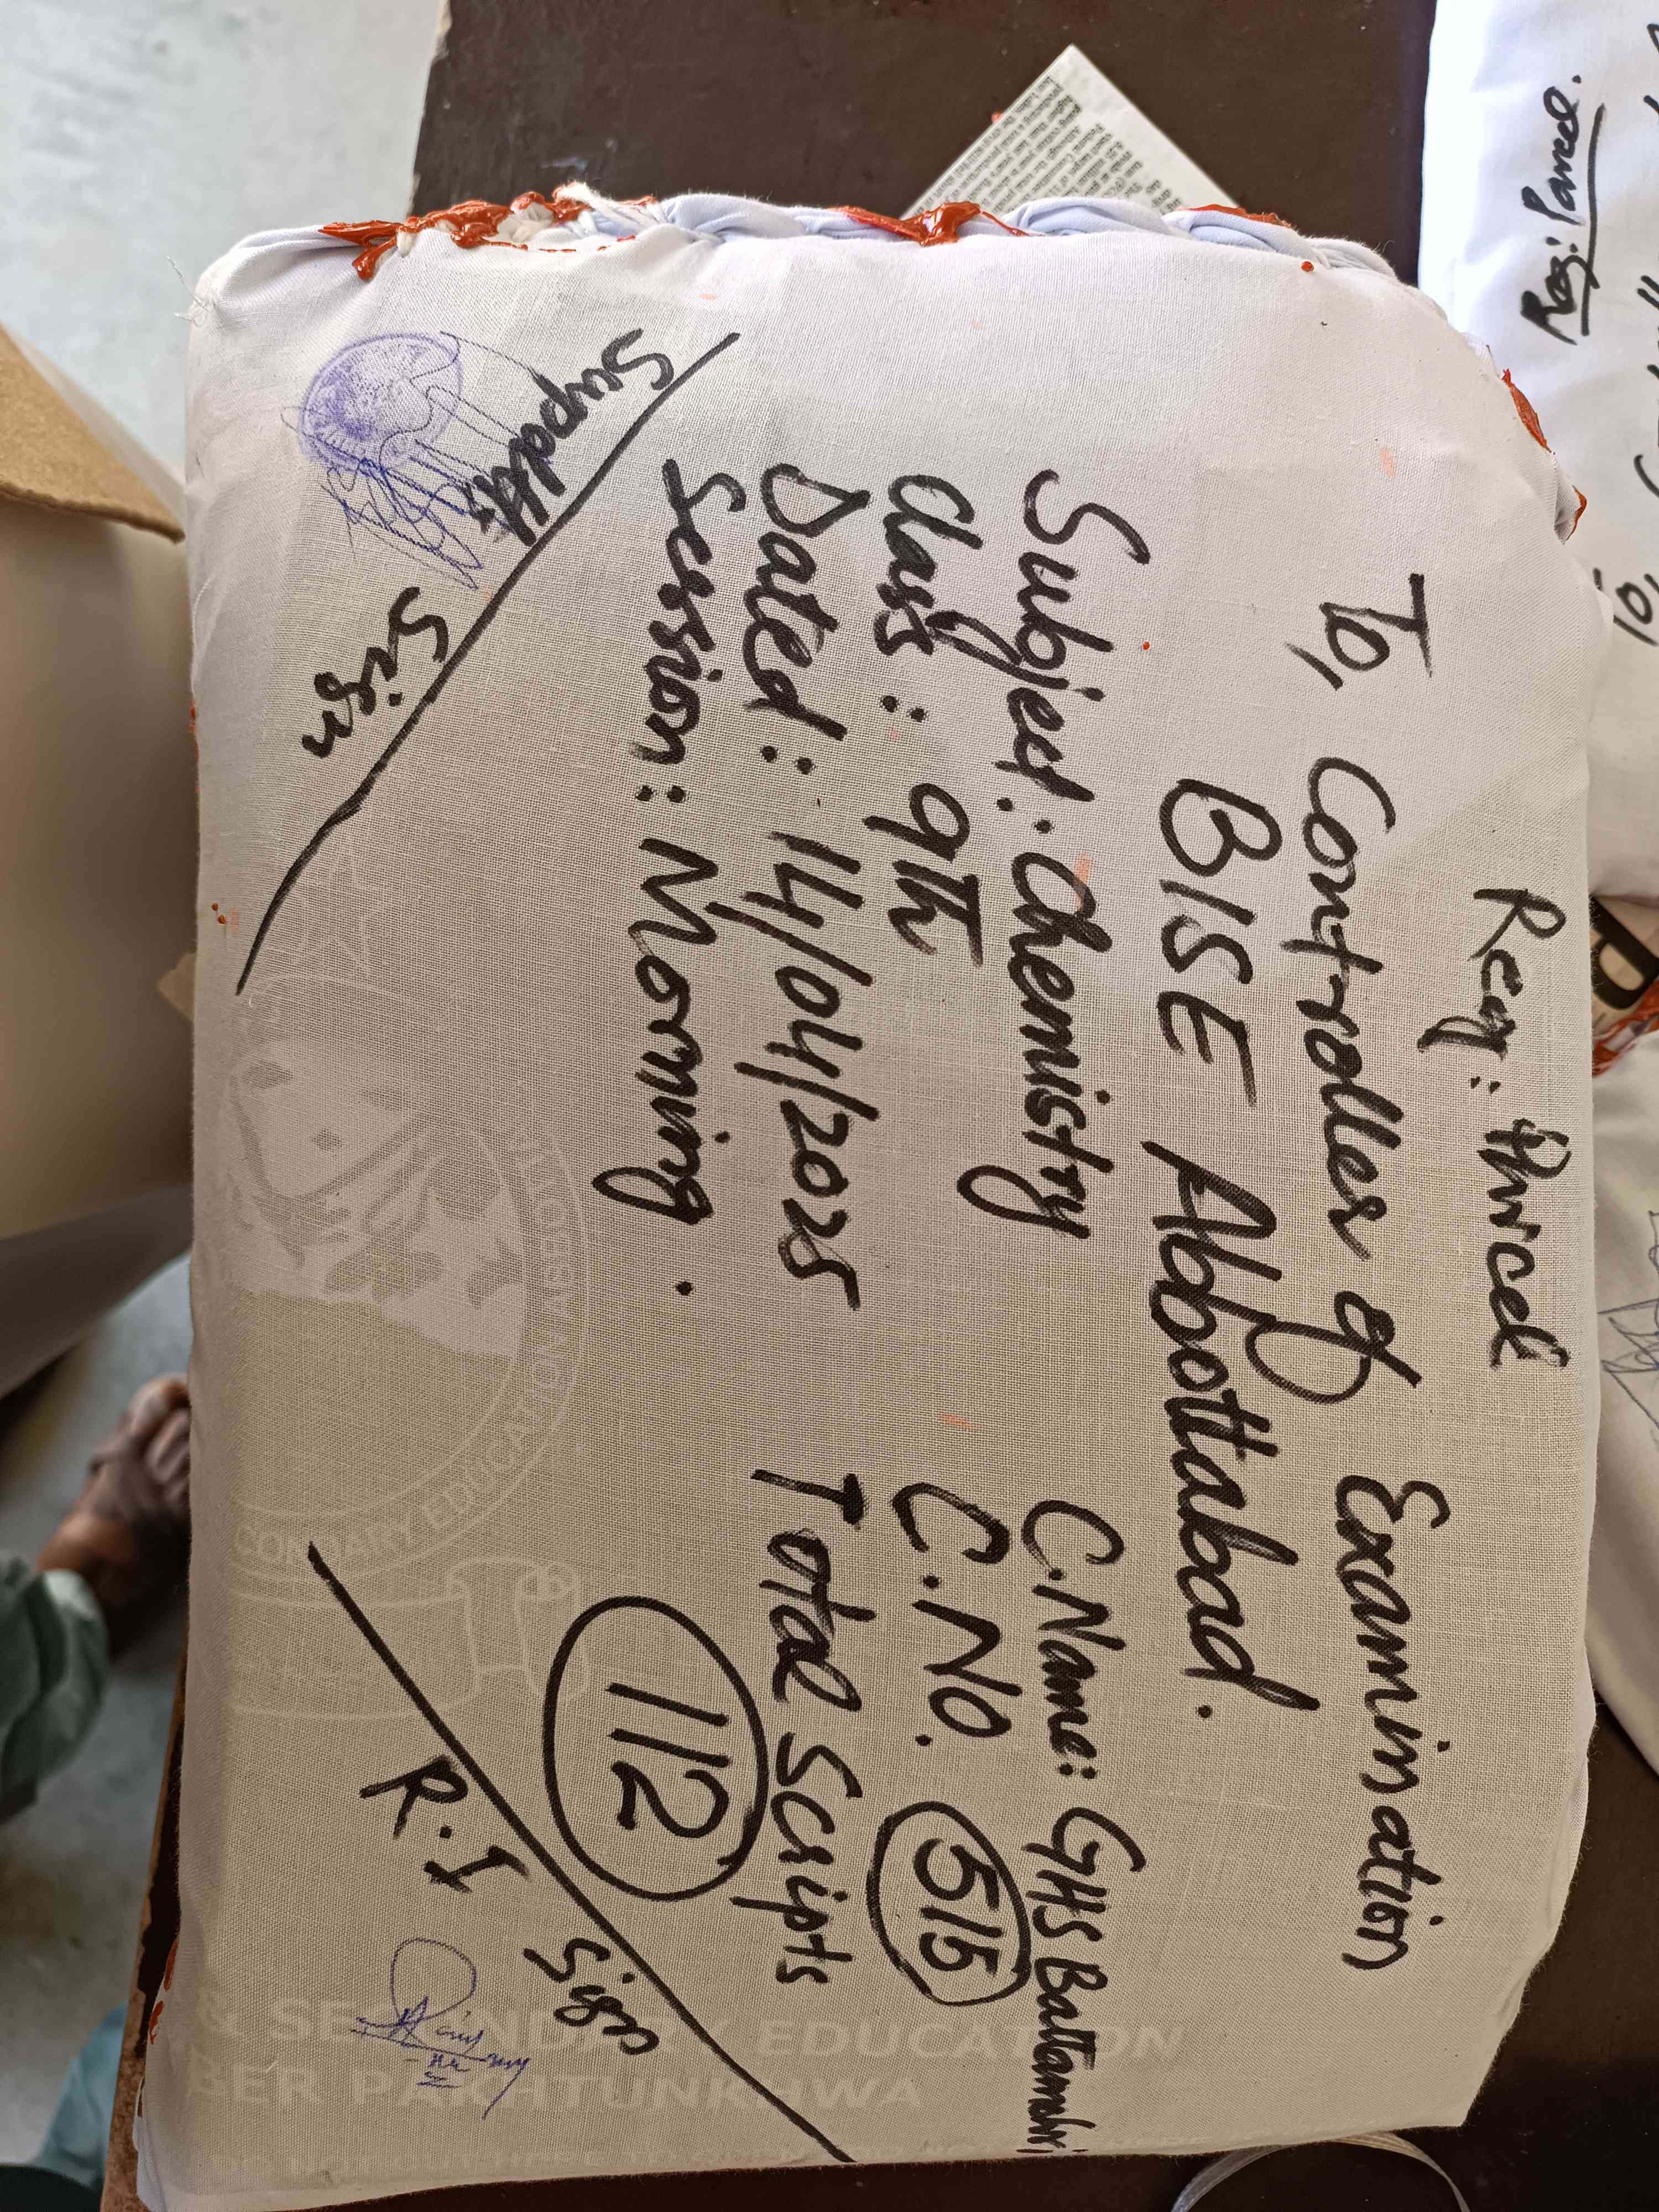 Reg: Parcel
To, Controller of Examination
BISE Abbottabad.
Subject. Chemistry
Class: 9th
Dated: 14/04/2025
Session: Morning.
C.Name: GHS Battamori
C.No. 515
Total Scripts
112
Supdtt:
Sign
R.I
Sign
CONDARY EDUCATION, ABBOTT
& SECONDARY EDUCATION
BER PAKHTUNKHWA
Reg: Parcel.
To,